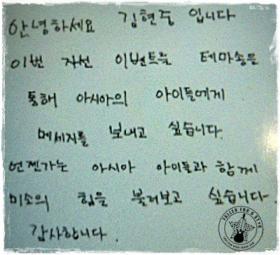 안녕하세요 김현중 입니다
이번 자선 이벤트를 테마송을
통해 아시아의 아이들에게
메세지를 보내고 싶습니다.
언젠가는 아시아 아이들과 함께
미소의 힘을 불러보고 싶습니다.
감사합니다.